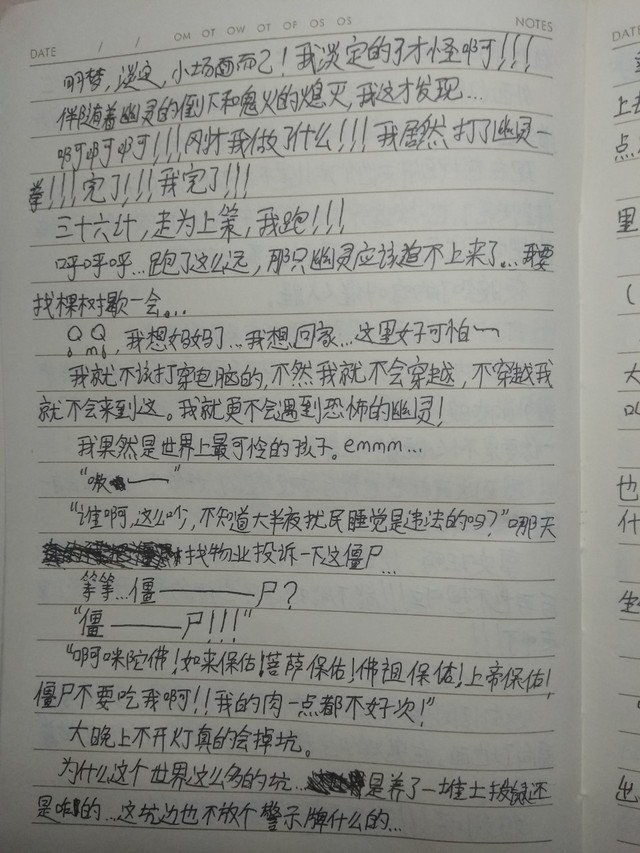 DATE / / OM OT OW OT OF OS OS NOTES
明梦,淡定,小场面而已!我淡定的了才怪啊!!!
伴随着幽灵的倒下和鬼火的熄灭,我这才发现...
啊啊啊!!!刚才我做了什么!!!我居然打了幽灵一
拳!!!完了!!!我完了!!!
三十六计,走为上策,我跑!!!
呼呼呼...跑了这么远,那只幽灵应该追不上来了...我要
找棵树歇一会...
QmQ,我想妈妈了...我想回家...这里好可怕~
我就不该打穿电脑的,不然我就不会穿越,不穿越我
就不会来到这。我就更不会遇到恐怖的幽灵!
我果然是世界上最可怜的孩子。emmm...
“嗷——”
“谁啊,这么吵,不知道大半夜扰民睡觉是违法的吗?”哪天
找物业投诉一下这僵尸...
等等...僵———尸?
“僵———尸!!!”
“啊咪陀佛!如来保佑!菩萨保佑!佛祖保佑!上帝保佑!
僵尸不要吃我啊!!我的肉一点都不好次!”
大晚上不开灯真的会掉坑。
为什么这个世界这么多的坑...是养了一堆土拨鼠还
是咋的...这坑边也不放个警示牌什么的...
DATE
上
点
里
(
大
也
什
生
出